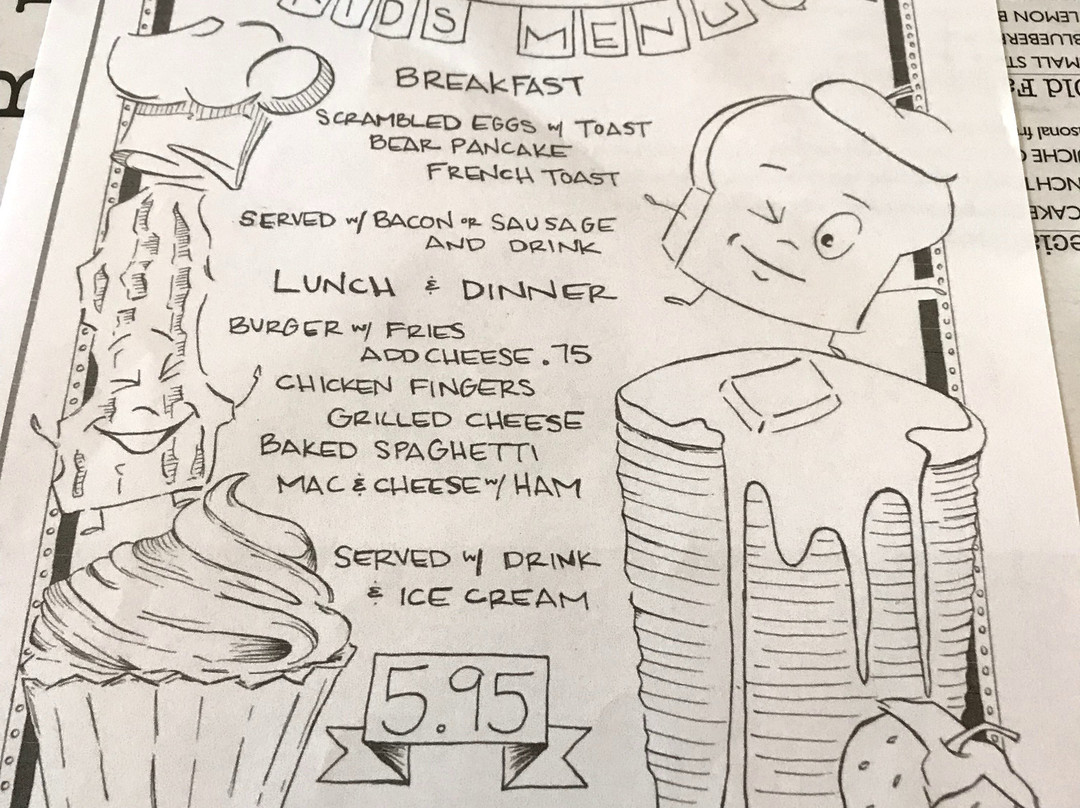 KIDS MENU
BREAKFAST
SCRAMBLED EGGS w/ TOAST
BEAR PANCAKE
FRENCH TOAST
SERVED w/ BACON OR SAUSAGE
AND DRINK
LUNCH & DINNER
BURGER w/ FRIES
ADD CHEESE .75
CHICKEN FINGERS
GRILLED CHEESE
BAKED SPAGHETTI
MAC & CHEESE w/ HAM
SERVED w/ DRINK
& ICE CREAM
5.95